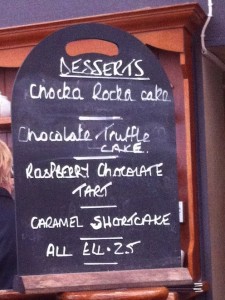 DESSERTS
Chocka Rocka cake
Chocolate Truffle
CAKE.
RASPBERRY CHOCOLATE
TART
CARAMEL SHORTCAKE
ALL £4.25